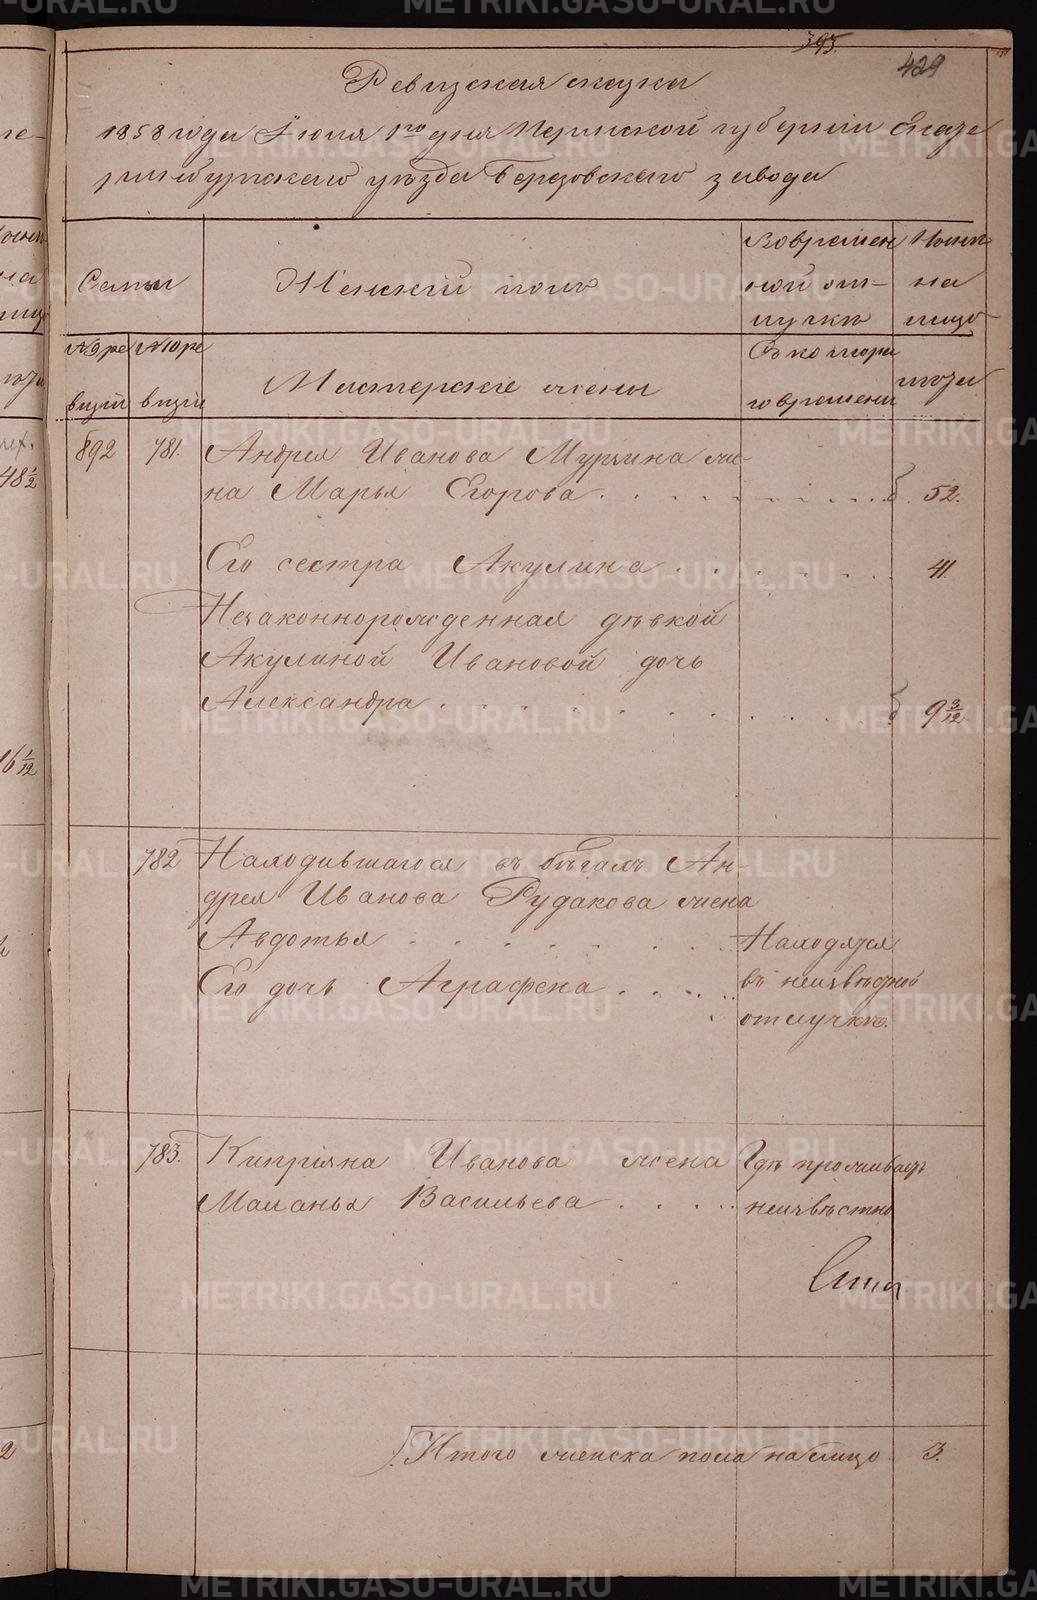 395.
429
Ревизская сказка
1858 года Июня 1го дня Пермской губернiи Екате
ринбургскаго уѣзда Березовскаго завода
Семьи
Женскiй полъ
Во времен
ной от-
лучкѣ
Нынѣ
на
лицо
№ 9 ре
визiи
№ 10 ре
визiи
Мастерскiе жены
Съ котора
го времени
лѣта
892
781.
Андрея Иванова Мурзина же-
на Марья Егорова
52.
Его сестра Акулина
41.
Незаконнорожденная дѣвкой
Акулиной Ивановой дочь
Александра
9 3/12
782
Находившагося въ бѣгахъ Ан-
дрея Иванова Рудакова жена
Авдотья
Его дочь Аграфена
Находятся
въ неизвѣстной
отлучкѣ.
783.
Кипріяна Иванова жена
Маланья Васильева
Гдѣ проживаетъ
неизвѣстно
Итого женска пола на лицо
3.
METRIKI.GASO-URAL.RU